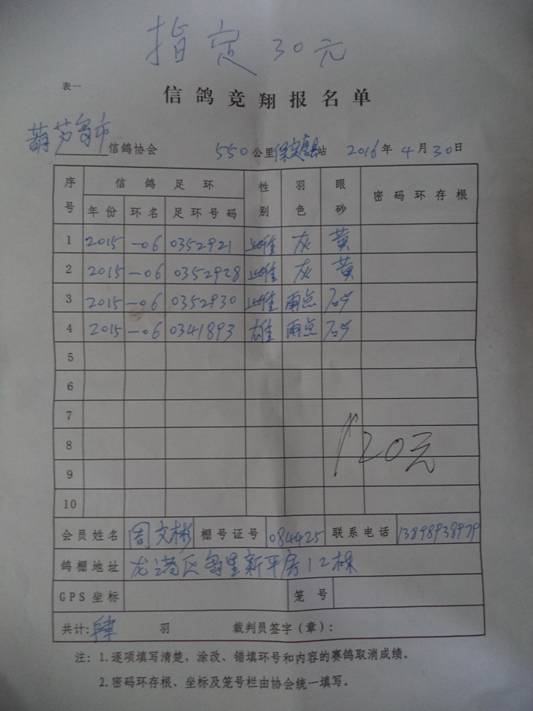 指定30元
表一
信鸽竞翔报名单
葫芦岛市信鸽协会 550公里 站 2016年4月30日
序号 信鸽足环 性别 羽色 眼砂 密码环存根
年份 环名 足环号码
1 2015-06 0352921 雌 灰 黄
2 2015-06 0352928 雌 灰 黄
3 2015-06 0352930 雌 雨点 砂
4 2015-06 0341893 雄 雨点 砂
5
6
7
8
9
10
120元
会员姓名 周文彬 棚号证号 084425 联系电话 13898938979
鸽棚地址 龙港区 里新平房12栋
GPS坐标 笼号
共计: 肆 羽 裁判员签字(章):
注: 1.逐项填写清楚, 涂改、错填环号和内容的赛鸽取消成绩。
2.密码环存根、坐标及笼号栏由协会统一填写。